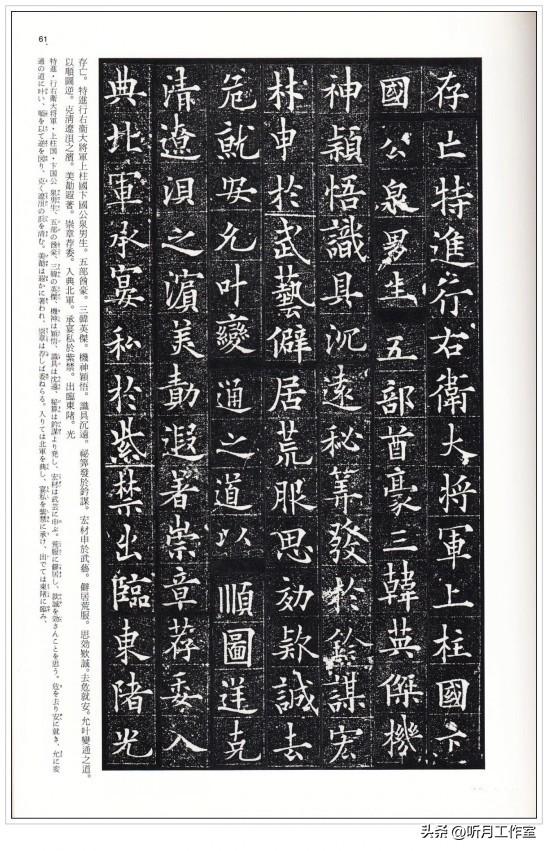 存亡特進行右衛大将軍上柱國卞
國公泉男生五部酋豪三韓英傑機
神穎悟識具沉遠秘筭發於鈐謀宏
材申於武藝僻居荒服思効欵誠去
危就安允叶變通之道以順圖逆克
清遼浿之濱美勣遐著崇章荐委入
典北軍承宴私於紫禁出臨東陼光
存亡。特進行右衛大將軍上柱國卞國公泉男生。五部酋豪。三韓英傑。機神穎悟。識具沉遠。祕筭發於鈐謀。宏材申於武藝。僻居荒服。思効欵誠。去危就安。允叶變通之道。
以順圖逆。克清遼浿之濱。美勣遐著。崇章荐委。入典北軍。承宴私於紫禁。出臨東陼。光
特進・行右衛大将軍・上柱国・卞国公 泉男生、五部の酋豪、三韓の英傑、機神は穎悟、識具は沈遠、秘算は鈐謀より発し、宏材は武芸に申ぶ。荒服に僻居し、欵誠を効さんことを思う。危を去り安に就き、允に変
通の道に叶い、順を以て逆を図り、克く遼浿の浜を清む。美勣は遐かに著われ、崇章は荐しば委ねらる。入りては北軍を典し、宴私を紫禁に承け、出でては東陼に臨み、
61
头条 @听月工作室